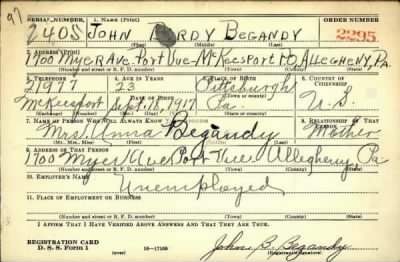 97
SERIAL NUMBER 1. NAME (Print) ORDER NUMBER
2408 JOHN BORDY BEGANDY 2295
(First) (Middle) (Last)
2. ADDRESS (Print)
1700 Myer Ave. Port Vue-McKeesport P.O. Allegheny, Pa.
(Number and street or R. F. D. number) (Town) (County) (State)
3. TELEPHONE 4. AGE IN YEARS 5. PLACE OF BIRTH 6. COUNTRY OF CITIZENSHIP
21977 23 Pittsburgh
DATE OF BIRTH
McKeesport Sept. 16, 1917 Pa. U.S.
(Exchange) (Mo.) (Day) (Yr.) (State or country)
7. NAME OF PERSON WHO WILL ALWAYS KNOW YOUR ADDRESS 8. RELATIONSHIP OF THAT PERSON
Mrs. Anna Begandy Mother
(Mr., Mrs., Miss) (First) (Middle) (Last)
9. ADDRESS OF THAT PERSON
1700 Myer Ave Port Vue Allegheny Pa
(Number and street or R. F. D. number) (Town) (County) (State)
10. EMPLOYER'S NAME
Unemployed
11. PLACE OF EMPLOYMENT OR BUSINESS
(Number and street or R. F. D. number) (Town) (County) (State)
I AFFIRM THAT I HAVE VERIFIED ABOVE ANSWERS AND THAT THEY ARE TRUE.
REGISTRATION CARD
D. S. S. Form 1 16-17105 John B. Begandy
(Registrant's signature)